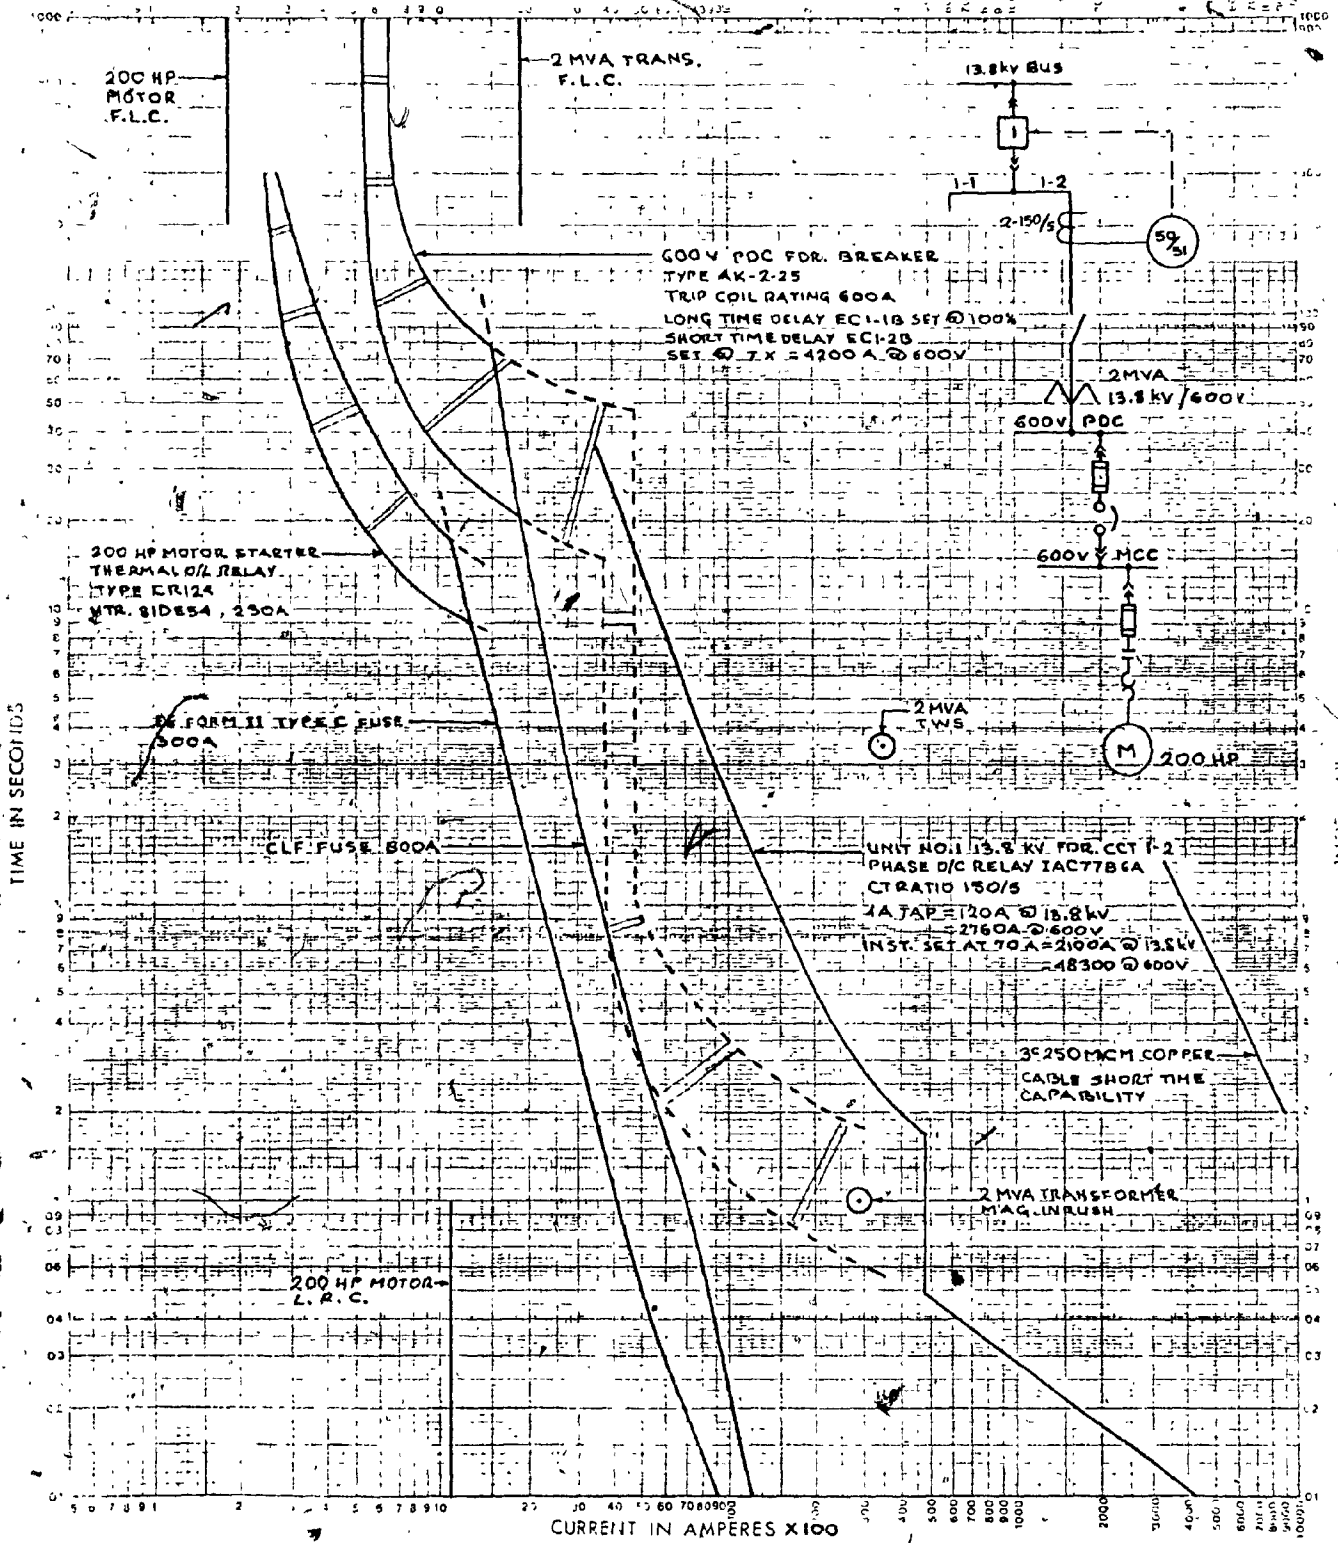 200 HP
MOTOR
F.L.C.
2 MVA TRANS.
F.L.C.
13.8kV BUS
1
1-1 1-2
2-150/5
50/51
600V PDC FDR. BREAKER
TYPE AK-2-25
TRIP COIL RATING 600A
LONG TIME DELAY EC1-1B SET @ 100%
SHORT TIME DELAY EC1-2B
SET @ 7X = 4200 A @ 600V
2MVA
13.8 kV/600V
600V PDC
600V MCC
M 200 HP
200 HP MOTOR STARTER
THERMAL O/L RELAY
TYPE CR124
HTR. 81D854, 230A
GE FORM II TYPE C FUSE
300A
2 MVA
T.W.S
CLF FUSE 800A
UNIT NO.1 13.8 KV FDR. CCT 1-2
PHASE O/C RELAY IAC77B6A
CT RATIO 150/5
4A TAP = 120A @ 13.8kV
= 2760A @ 600V
INST. SET AT 70A = 2100A @ 13.8kV
= 48300 @ 600V
3C 250 MCM COPPER
CABLE SHORT TIME
CAPABILITY
2 MVA TRANSFORMER
MAG. INRUSH
200 HP MOTOR
L.R.C.
TIME IN SECONDS
CURRENT IN AMPERES X100